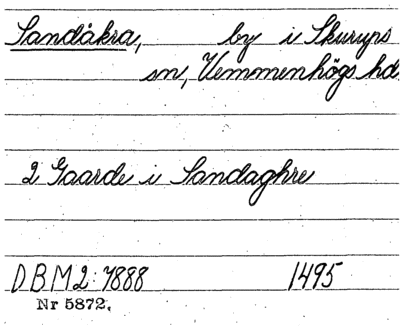 Sandåkra, by i Skurups
sn, Vemmenhögs hd
2 Gaarde i Sandaghre
DBM2: 7888 1495
Nr 5872.